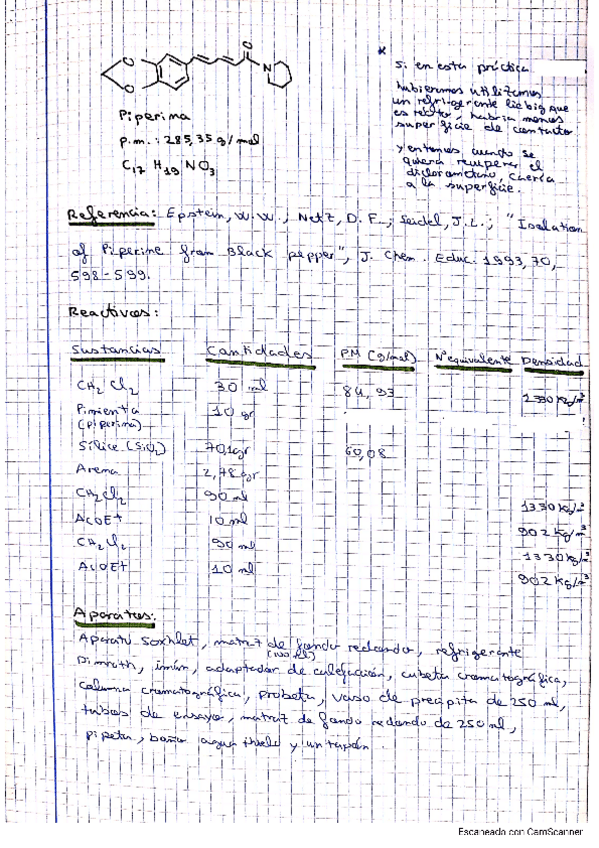 Piperina
p.m.: 285,35 g/mol
C17 H19 NO3
* Si en esta práctica
hubieramos utilizamos
un refrigerante liebig que
es recto, habría menos
superficie de contacto
y entonces cuando se
quiera recuperar el
diclorometano, caería
a la superficie.
Referencia: Epstein, W.W., Netz, D.F., Seidel, J.L.; "Isolation
of Piperine from Black pepper", J. Chem. Educ. 1993, 70,
598-599.
Reactivos:
Sustancias Cantidades PM (g/mol) Nºequivalente Densidad
CH2Cl2 30 ml 84,93 1330 kg/m3
Pimienta 10 gr
(piperina)
Sílice (SiO2) 70,1gr 60,08
Arena 2,78gr
CH2Cl2 90 ml 1330 kg/m3
AcOEt 10 ml 902 kg/m3
CH2Cl2 90 ml 1330 kg/m3
AcOEt 10 ml 902 kg/m3
Aparatos:
Aparato soxhlet, matraz de fondo redondo, refrigerante
(100 ml)
Dimroth, imán, adaptador de calefacción, cubeta cromatográfica,
columna cromatográfica, probeta, vaso de precipita de 250 ml,
tubos de ensayo, matraz de fondo redondo de 250 ml,
pipeta, baño agua y un tapón.
Escaneado con CamScanner